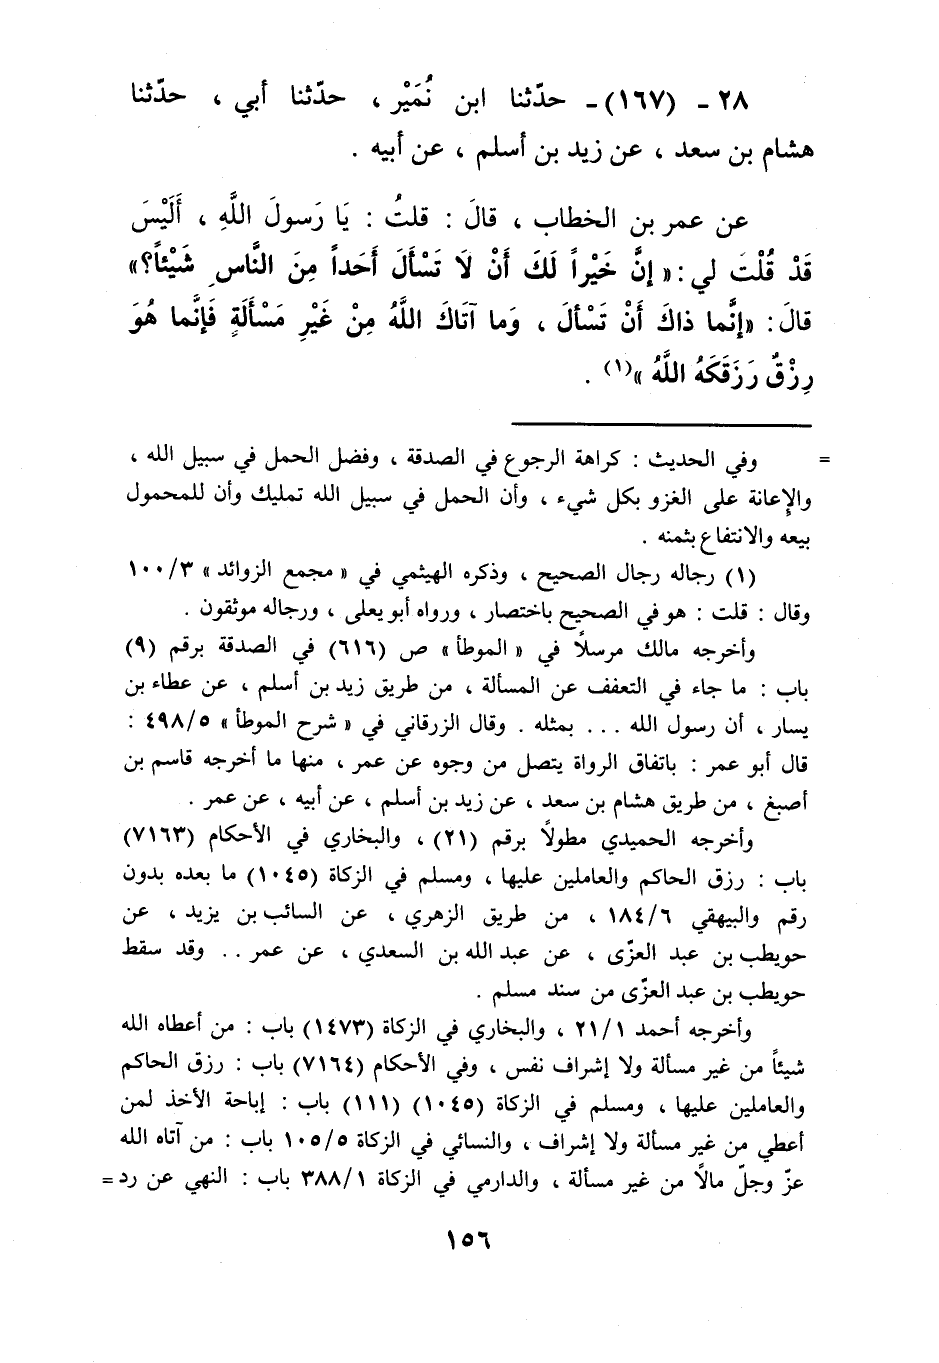 ٢٨ - (١٦٧) - حدّثنا ابن نُمَيْر ، حدّثنا أبي ، حدّثنا
هشام بن سعد ، عن زيد بن أسلم ، عن أبيه .
عن عمر بن الخطاب ، قالَ : قلتُ : يَا رَسولَ اللَّهِ ، أَلَيْسَ
قَدْ قُلْتَ لي : « إنَّ خَيْراً لَكَ أَنْ لَا تَسْأَلَ أَحَداً مِنَ النَّاسِ شَيْئاً؟»
قالَ : «إنَّما ذاكَ أَنْ تَسْألَ ، وَما آتَاكَ اللَّهُ مِنْ غَيْرِ مَسْأَلَةٍ فَإنَّما هُوَ
رِزْقٌ رَزَقَكَهُ اللَّهُ »(١) .
= وفي الحديث : كراهة الرجوع في الصدقة ، وفضل الحمل في سبيل الله ،
والإعانة على الغزو بكل شيء ، وأن الحمل في سبيل الله تمليك وأن للمحمول
بيعه والانتفاع بثمنه .
(١) رجاله رجال الصحيح ، وذكره الهيثمي في « مجمع الزوائد » ١٠٠/٣
وقال : قلت : هو في الصحيح باختصار ، ورواه أبو يعلى ، ورجاله موثقون .
وأخرجه مالك مرسلاً في « الموطأ » ص (٦١٦) في الصدقة برقم (٩)
باب : ما جاء في التعفف عن المسألة ، من طريق زيد بن أسلم ، عن عطاء بن
يسار ، أن رسول الله ... بمثله . وقال الزرقاني في « شرح الموطأ » ٤٩٨/٥ :
قال أبو عمر : باتفاق الرواة يتصل من وجوه عن عمر ، منها ما أخرجه قاسم بن
أصبغ ، من طريق هشام بن سعد ، عن زيد بن أسلم ، عن أبيه ، عن عمر .
وأخرجه الحميدي مطولاً برقم (٢١) ، والبخاري في الأحكام (٧١٦٣)
باب : رزق الحاكم والعاملين عليها ، ومسلم في الزكاة (١٠٤٥) ما بعده بدون
رقم والبيهقي ١٨٤/٦ ، من طريق الزهري ، عن السائب بن يزيد ، عن
حويطب بن عبد العزّى ، عن عبد الله بن السعدي ، عن عمر .. وقد سقط
حويطب بن عبد العزّى من سند مسلم .
وأخرجه أحمد ٢١/١ ، والبخاري في الزكاة (١٤٧٣) باب : من أعطاه الله
شيئاً من غير مسألة ولا إشراف نفس ، وفي الأحكام (٧١٦٤) باب : رزق الحاكم
والعاملين عليها ، ومسلم في الزكاة (١٠٤٥) (١١١) باب : إباحة الأخذ لمن
أعطي من غير مسألة ولا إشراف ، والنسائي في الزكاة ١٠٥/٥ باب : من آتاه الله
عزّ وجلّ مالاً من غير مسألة ، والدارمي في الزكاة ٣٨٨/١ باب : النهي عن رد =
١٥٦